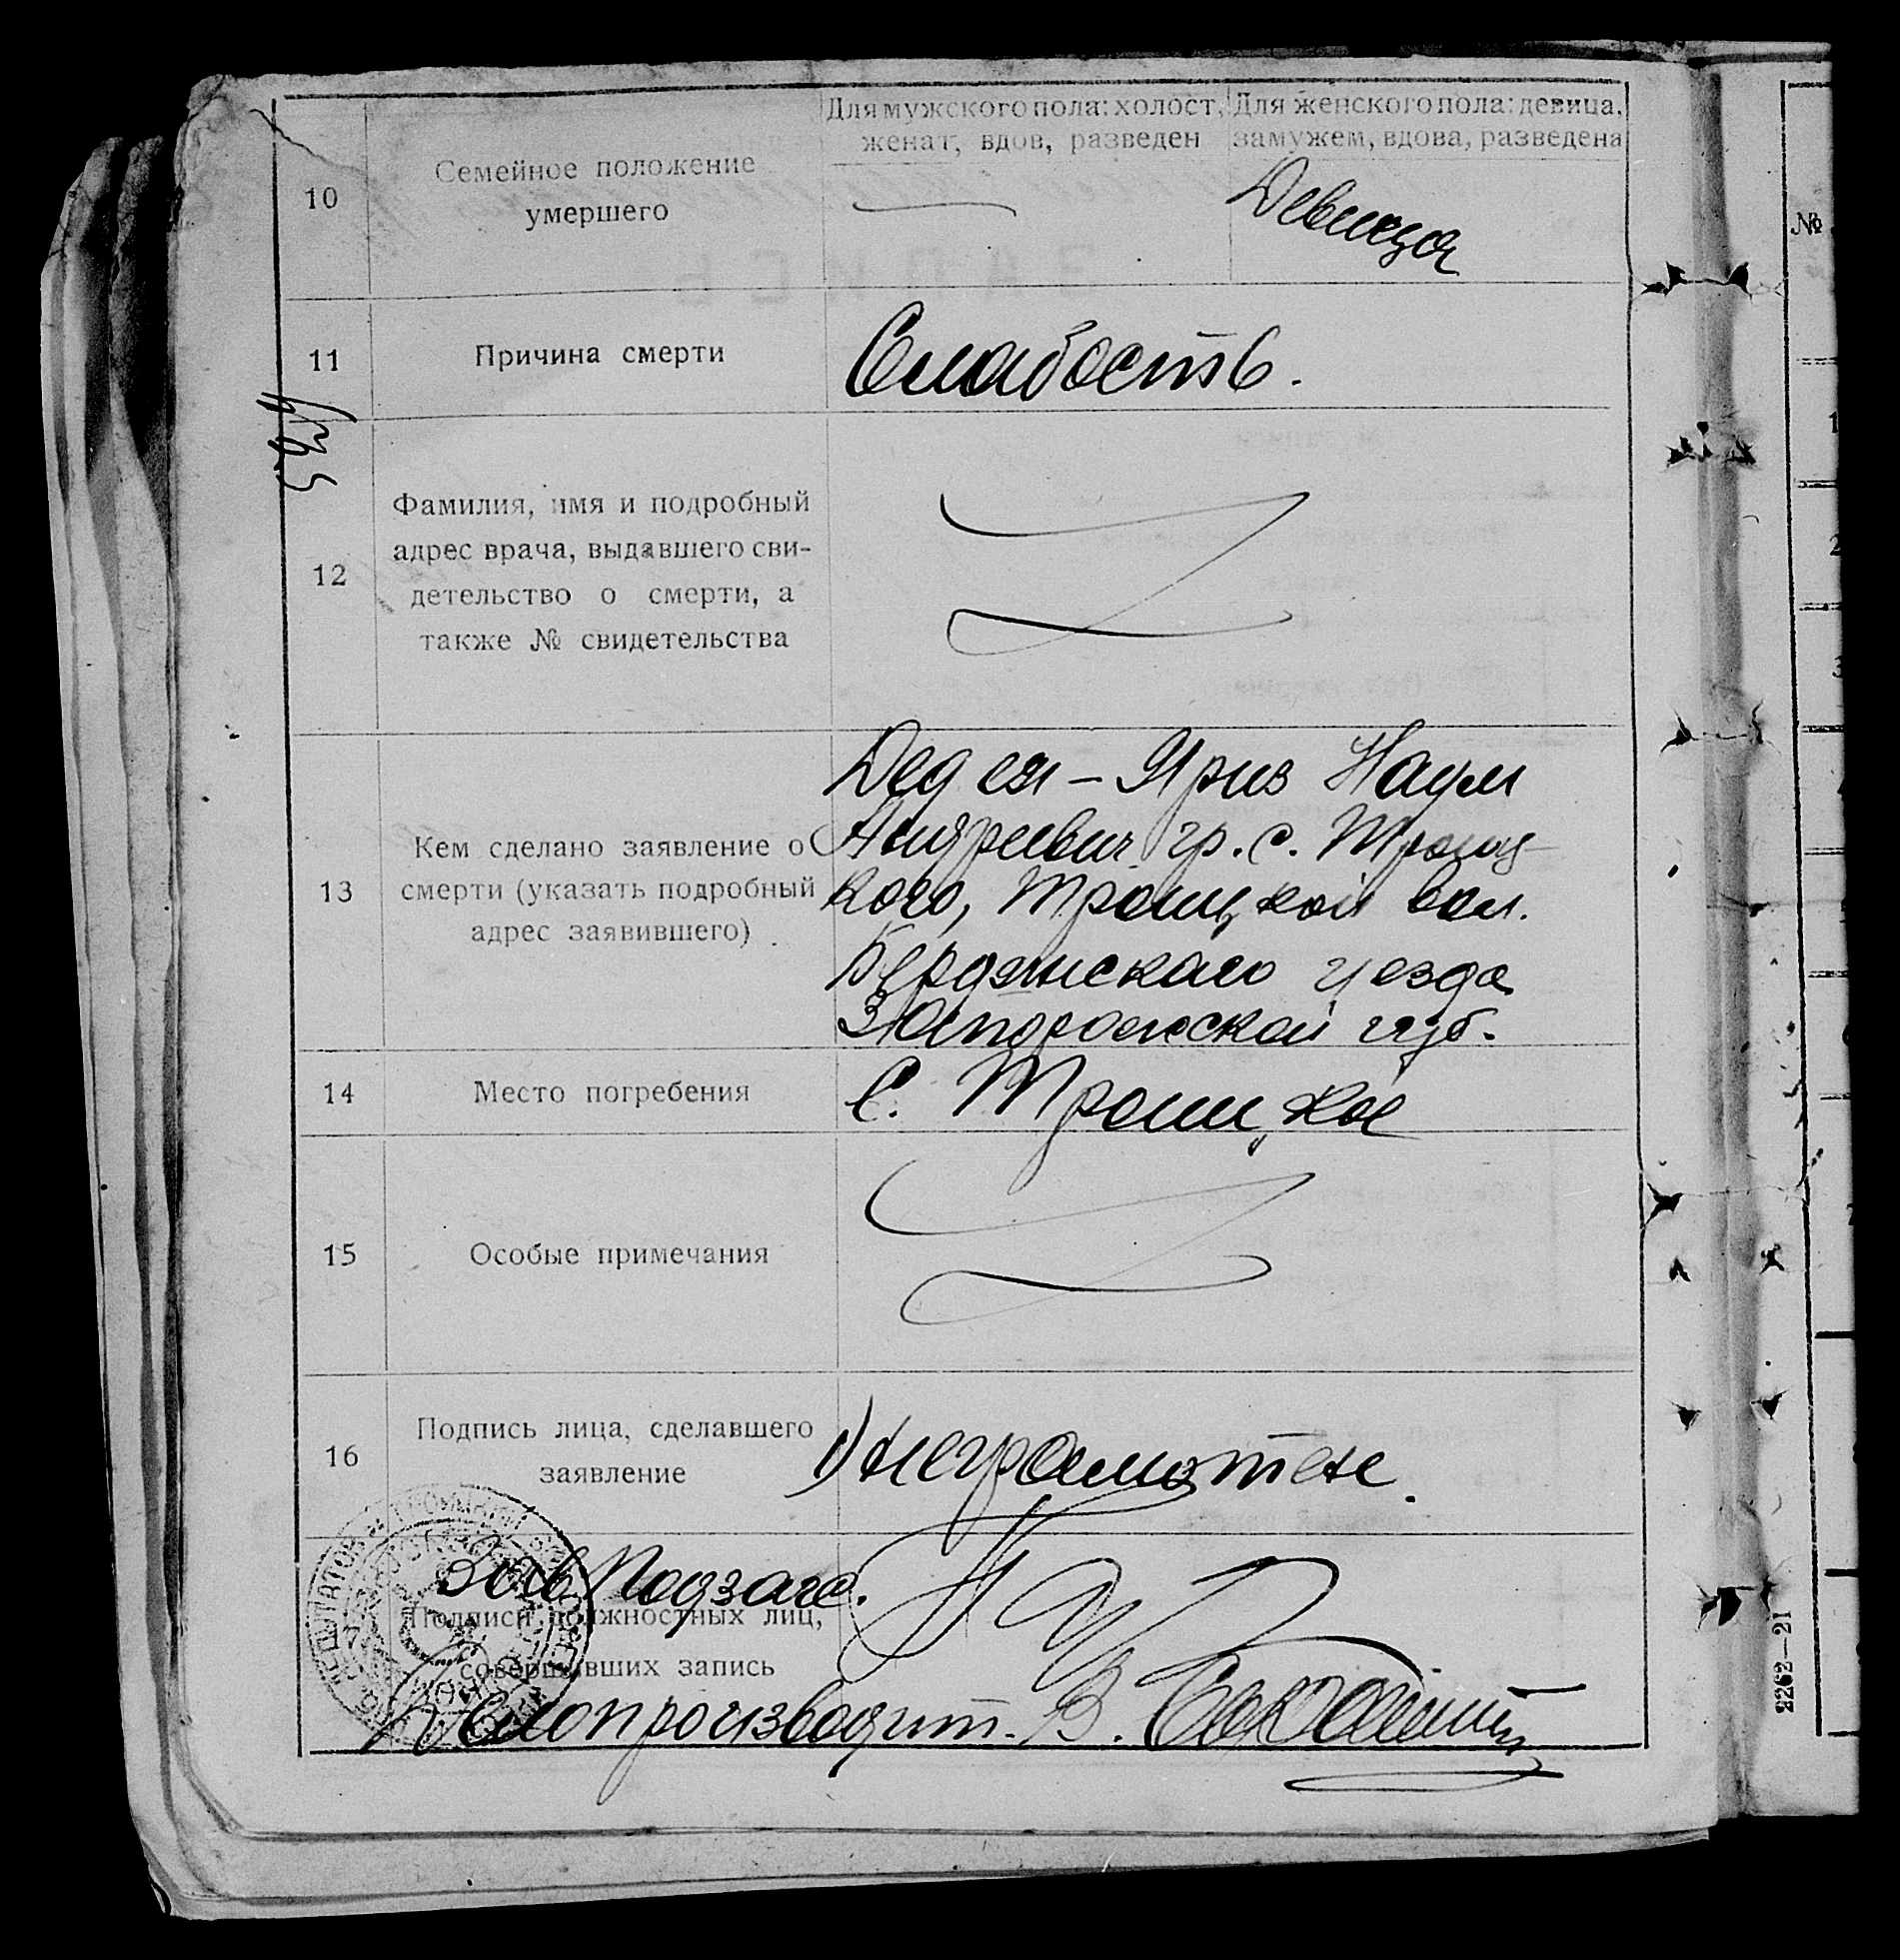 Для мужского пола: холост, женат, вдов, разведен
Для женского пола: девица, замужем, вдова, разведена
10
Семейное положение
умершего
Девица
11
Причина смерти
Слабость.
12
Фамилия, имя и подробный
адрес врача, выдавшего сви-
детельство о смерти, а
также № свидетельства
13
Кем сделано заявление о
смерти (указать подробный
адрес заявившего)
Дед ея - Яриз Наум
Андреевич гр. с. Троиц-
кого, Троицкой вол.
Бердянскаго уезда
Запорожской губ.
14
Место погребения
С. Троицкое
15
Особые примечания
16
Подпись лица, сделавшего
заявление
1) неграмотен.
Зав Подзагс.
17
Подписи должностных лиц,
совершивших запись
Делопроизводит. В.
№
2262—21